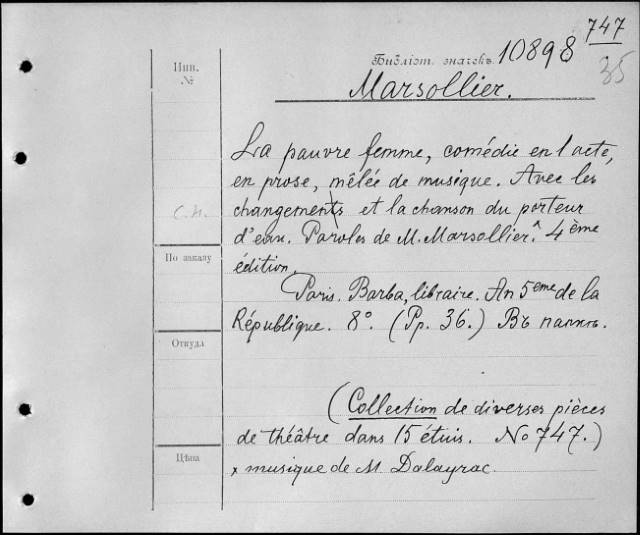 747
35
Инв.
№
Библіот. значекъ 10898
Marsollier.
La pauvre femme, comédie en 1 acte,
en prose, mêlée de musique. Avec les
changements et la chanson du porteur
d'eau. Paroles de M. Marsollier.^ 4ème
édition.
Paris. Barba, libraire. An 5eme de la
République. 8°. (Pp. 36.) Въ папкѣ.
По заказу
Откуда
(Collection de diverses pièces
de théâtre dans 15 étuis. No 747.)
Цѣна
x musique de M. Dalayrac.